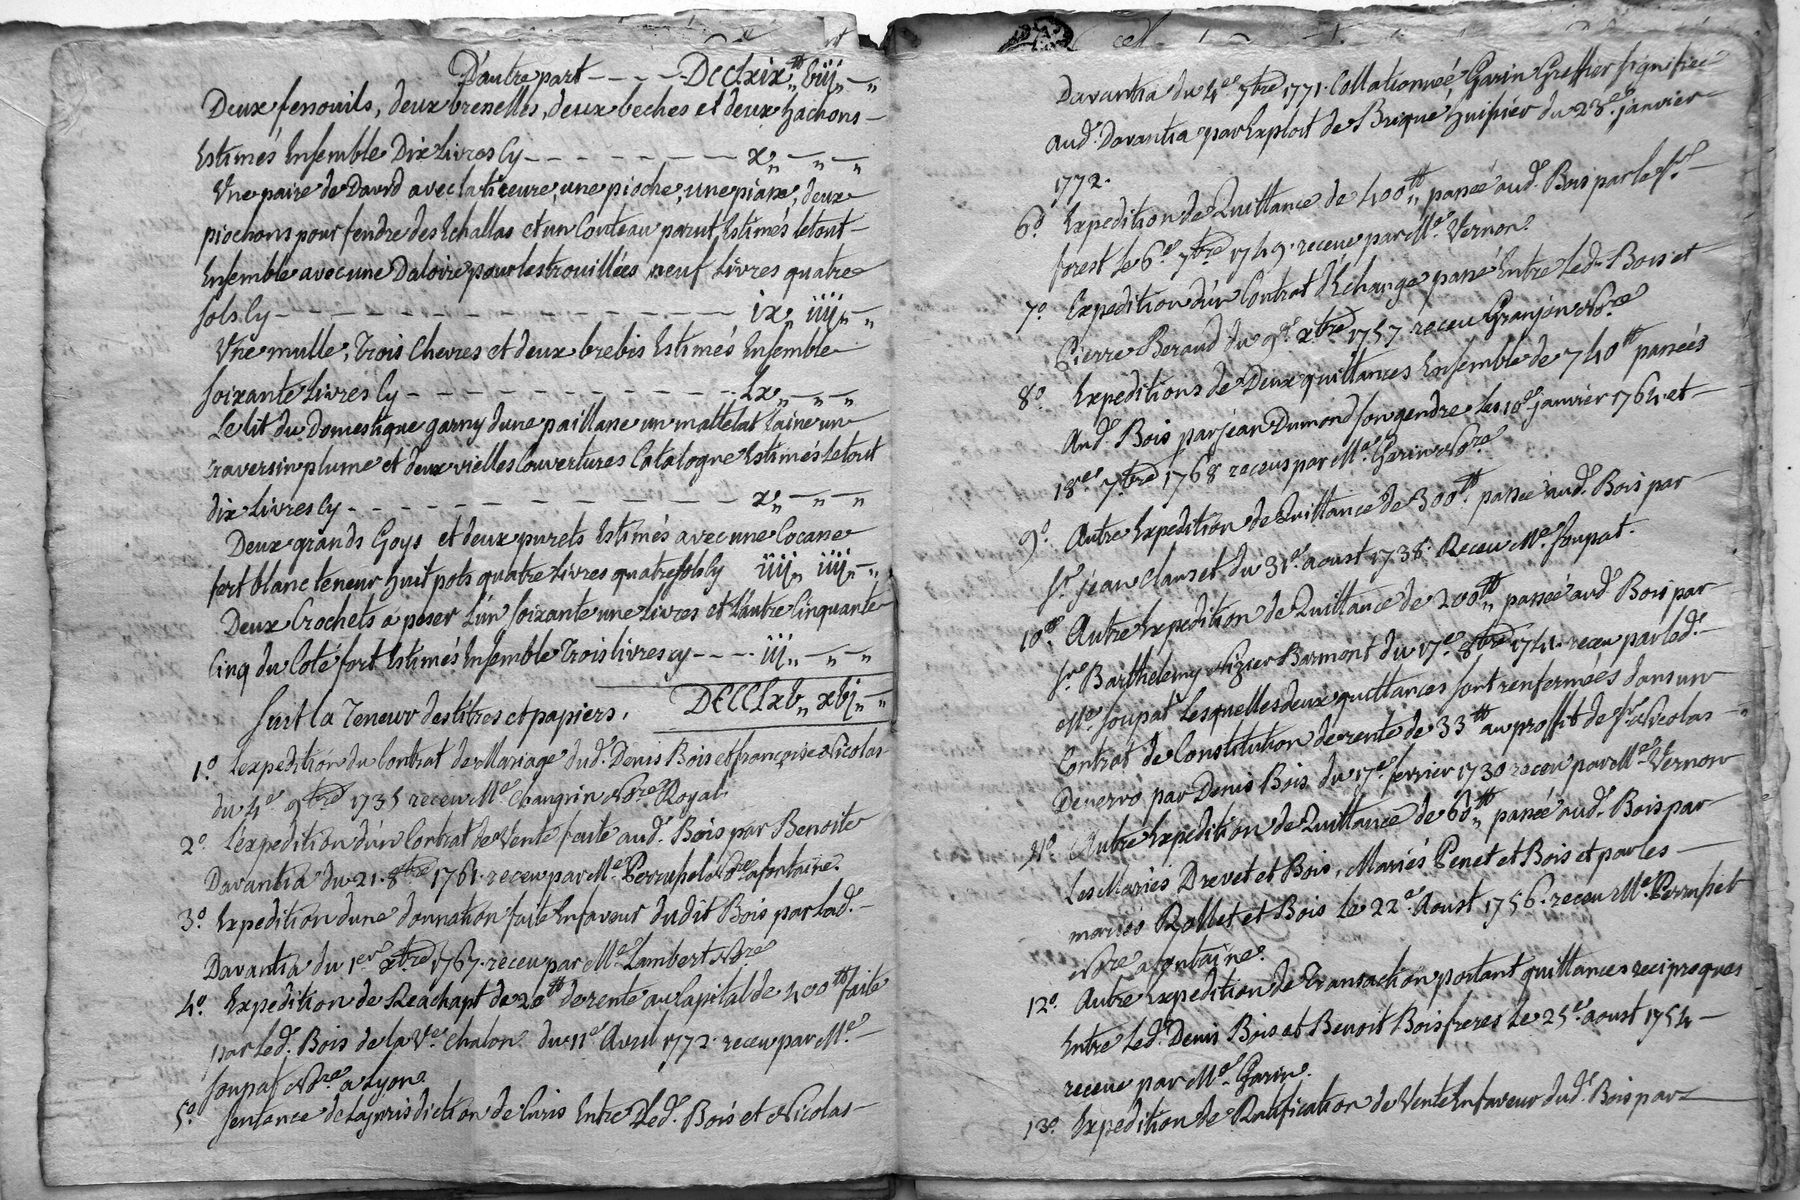 D'autre part - - - - DCClxix₶ biij „ - „
Deux fenouils, deux brenelles, deux beches et deux hachons -
Estimés Ensemble Dix Livres Cy - - - - - - - x „ - „ - „
Une paire de David avec la ticeure, une pioche, une piaxe, deux
piochons pour fendre des Echallas et un Couteau parut, Estimés le tout -
Ensemble avec une Daloire pour les trouillées neuf Livres quatre
sols Cy - - - - - - - - - - - ix „ iiij „ - „
Une mulle, Trois Chevres et deux brebis Estimés Ensemble
soixante Livres Cy - - - - - - - - - - Lx „ - „ - „
Le lit du Domestique garny d'une paillasse un mattelat laine un
traversin plume et deux vielles Couvertures Catalogne Estimés Le tout
dix Livres Cy - - - - - - - - x „ - „ - „
Deux grands Goys et deux purets Estimés avec une Cocasse
fert blanc teneur huit pots quatre Livres quatre sols Cy iiij „ iiij „ - „
Deux Crochets a peser L'un soixante une Livres et L'autre Cinquante
Cinq du Coté fort Estimés Ensemble Trois livres cy - - - - iij „ - „ - „
DCCCLxb „ xbj „ - „
Suit la Teneur des titres et papiers.
1.° L'expedition du Contrat de Mariage dud. Denis Bois et françoise Nicolas
du 4.e 9bre 1735 receu M.e Chaugrin No.re Royal
2.° L'expedition d'un Contrat de Vente faite aud. Bois par Benoite
Davantia du 21. 8bre 1761. receu par M.e Perruhel No.re a fontaine.
3.° Expedition d'une donnation faite En faveur dudit Bois par Lad. -
Davantia du 1.er xbre 1767. receu par M.e Lambert No.re
4.° Expedition de Reachapt de 20₶ de rente au Capital de 400₶ faite
par Led. Bois de la V.e Chalon du 11.e Avril 1772. receu par M.e -
Soupat No.re a Lyon
5.° Sentence de La jurisdiction de Curis Entre Led. Bois et Nicolas -
Davantia du 4.e 7bre 1771. Collationneé, Garin Greffier signifiee
aud. Davantia par Exploit de Brique huissier du 23.e janvier
1772.
6.° Expedition de Quittance de 400₶ „ passée aud. Bois par le S.r -
forest le 6.e 7bre 1749. receue par M.e Vernon.
7.° Expedition d'un Contrat d'Echange passé Entre Led. Bois et
Pierre Beraud du 9.e xbre 1757. receu Granjon No.re
8.° Expeditions de Deux quittances Ensemble de 740₶ passées
aud. Bois par jean Dumond son gendre les 10.e janvier 1764 et -
18.e 7bre 1768 receus par M.e Garin No.re
9.° Autre Expedition de Quittance de 300₶. passée aud. Bois par -
S.r jean Clauset du 31.e aoust 1738. Receu M.e Soupat.
10.° Autre Expedition de Quittance de 200₶ „ passée aud. Bois par -
S.r Barthelemy Nizier Barmont du 17.e 8bre 1741. receu par led. -
M.e Soupat Lesquelles deux quittances sont renfermées dans un
Contrat de Constitution de rente de 33₶ au proffit de S.r Nicolas -
Denervo par Denis Bois du 17.e fevrier 1730 receu par M.e Vernon
11.° Autre Expedition de Quittance de 60₶ „ passée aud. Bois par
Les Mariés Drevet et Bois, Mariés Penet et Bois et par les -
mariés Rollet et Bois Le 22.e Aoust 1756. receu M.e Perruhel
No.re a fontaine.
12.° Autre Expedition de Transaction portant quittances reciproques
Entre Led. Denis Bois et Benoit Bois freres Le 25.e aoust 1754 -
receue par M.e Garin.
13.° Expedition de Ratification de Vente En faveur dud. Bois par